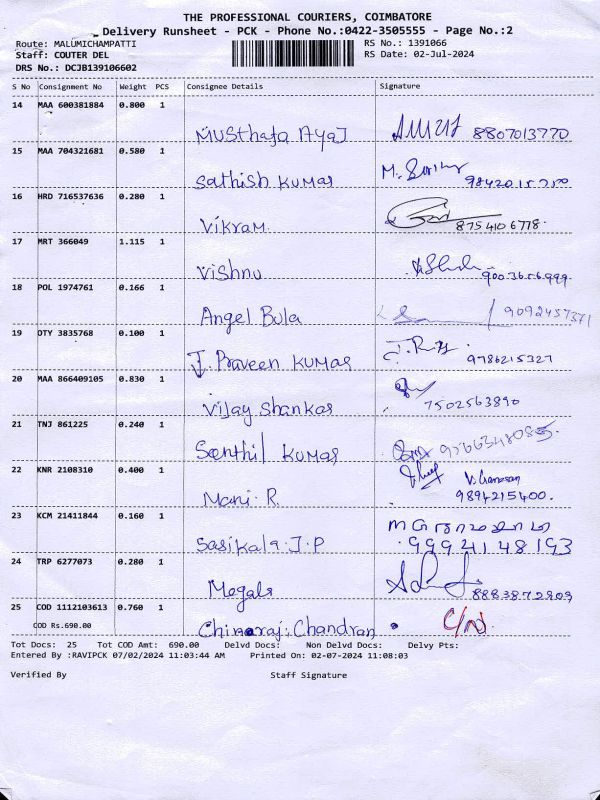 THE PROFESSIONAL COURIERS, COIMBATORE
Delivery Runsheet - PCK - Phone No.:0422-3505555 - Page No.:2
Route: MALUMICHAMPATTI RS No.: 1391066
Staff: COUTER DEL RS Date: 02-Jul-2024
DRS No.: DCJB139106602
S No Consignment No Weight PCS Consignee Details Signature
14 MAA 600381884 0.800 1
Musthafa Ayaj 8807013770
15 MAA 704321681 0.580 1
Sathish Kumar
16 HRD 716537636 0.280 1
Vikram. 8754106778.
17 MRT 366049 1.115 1
Vishnu
18 POL 1974761 0.166 1
Angel Bula 9092457371
19 OTY 3835768 0.100 1
J. Praveen Kumar 9786215327
20 MAA 866409105 0.830 1
Vijay Shankar 7502563890
21 TNJ 861225 0.240 1
Senthil Kumar
22 KNR 2108310 0.400 1
Mani. R. 9894215400.
23 KCM 21411844 0.160 1
Sasikala. J. P 9994148193
24 TRP 6277073 0.280 1
Megala
25 COD 1112103613 0.760 1
COD Rs.690.00
Chinaraj. Chandran
Tot Docs: 25 Tot COD Amt: 690.00 Delvd Docs: Non Delvd Docs: Delvy Pts:
Entered By :RAVIPCK 07/02/2024 11:03:44 AM Printed On: 02-07-2024 11:08:03
Verified By Staff Signature